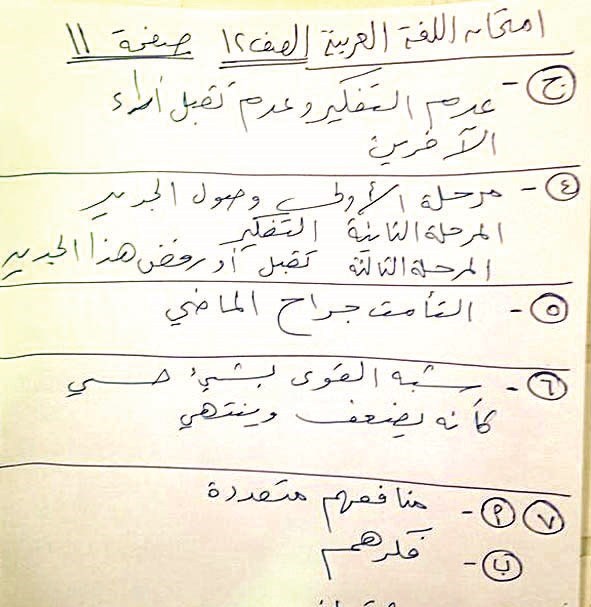 امتحان اللغة العربية الصف ١٢ صفحة ١١
ج - عدم التفكير وعدم تقبل آراء
الآخرين
٤ - مرحلة الأولى وصول الجديد
المرحلة الثانية التفكير
المرحلة الثالثة تقبل أو رفض هذا الجديد
٥ - التأمت جراح الماضي
٦ - شبه القوى بشيء حسي
كأنه يضعف وينتهي
٧ م - منافعهم متعددة
ب - فكرهم